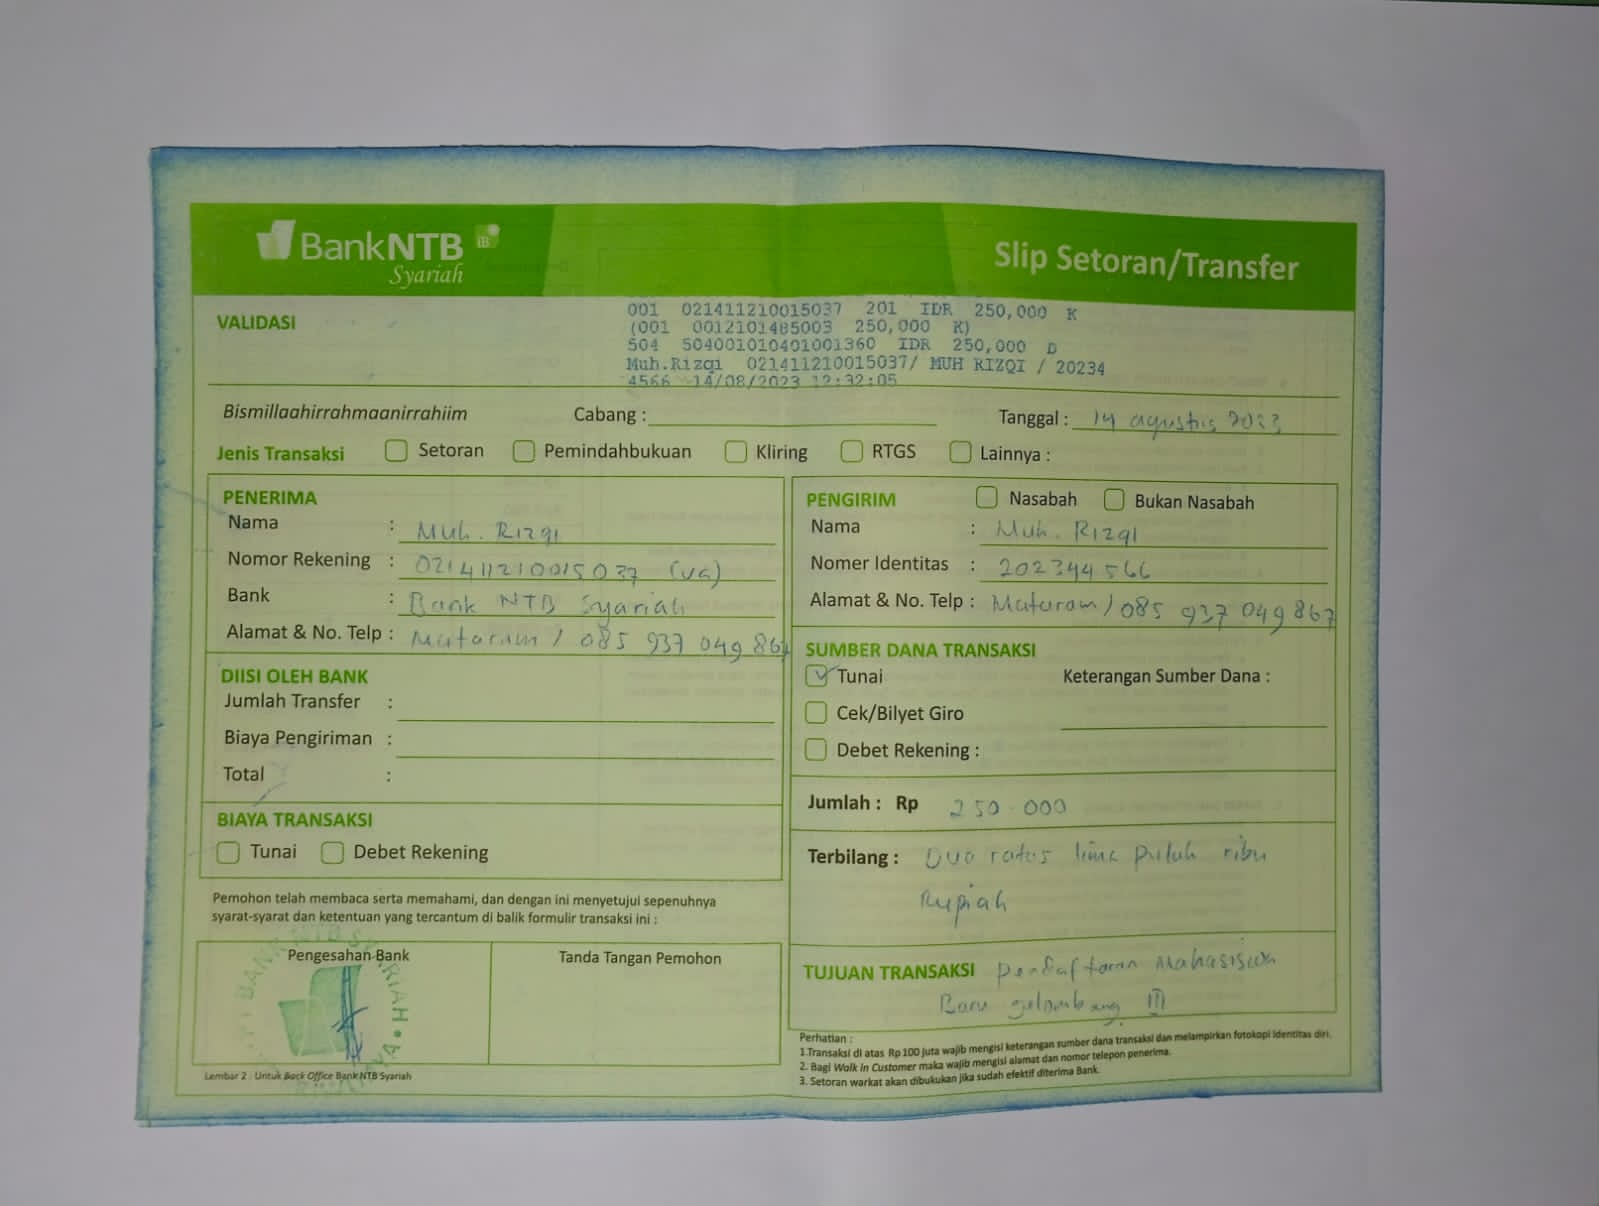 BankNTB iB
Syariah
Slip Setoran/Transfer
VALIDASI
001 021411210015037 201 IDR 250,000 K
(001 0012101485003 250,000 K)
504 504001010401001360 IDR 250,000 D
Muh.Rizqi 021411210015037/ MUH RIZQI / 20234
4566 14/08/2023 12:32:05
Bismillaahirrahmaanirrahiim Cabang : Tanggal : 14 agustus 2023
Jenis Transaksi Setoran Pemindahbukuan Kliring RTGS Lainnya :
PENERIMA
Nama : Muh. Rizqi
Nomor Rekening : 021411210015037 (va)
Bank : Bank NTB Syariah
Alamat & No. Telp : Mataram / 085 937 049 867
DIISI OLEH BANK
Jumlah Transfer :
Biaya Pengiriman :
Total :
BIAYA TRANSAKSI
Tunai Debet Rekening
Pemohon telah membaca serta memahami, dan dengan ini menyetujui sepenuhnya
syarat-syarat dan ketentuan yang tercantum di balik formulir transaksi ini :
Pengesahan Bank
BANK NTB SYARIAH
Tanda Tangan Pemohon
Lembar 2 : Untuk Back Office Bank NTB Syariah
PENGIRIM Nasabah Bukan Nasabah
Nama : Muh. Rizqi
Nomer Identitas : 202344566
Alamat & No. Telp : Mataram / 085 937 049 867
SUMBER DANA TRANSAKSI
Tunai Keterangan Sumber Dana :
Cek/Bilyet Giro
Debet Rekening :
Jumlah : Rp 250.000
Terbilang : Dua ratus lima puluh ribu
Rupiah
TUJUAN TRANSAKSI Pendaftaran Mahasiswa
Baru gelombang III
Perhatian :
1.Transaksi di atas Rp 100 juta wajib mengisi keterangan sumber dana transaksi dan melampirkan fotokopi identitas diri.
2. Bagi Walk in Customer maka wajib mengisi alamat dan nomor telepon penerima.
3. Setoran warkat akan dibukukan jika sudah efektif diterima Bank.